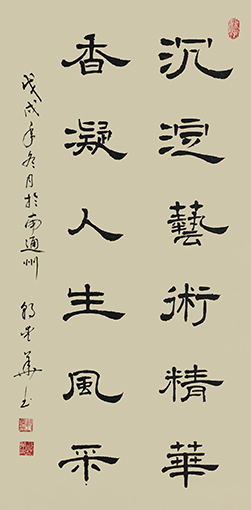 沉淀藝術精華
香凝人生風采
戊戌年冬月於南通州